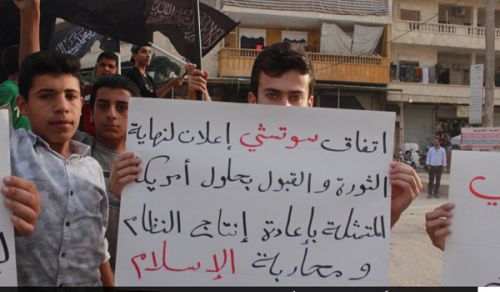 اتفاق سوتشي إعلان لنهاية
الثورة والقبول بحلول أمريكا
المتمثلة بإعادة إنتاج النظام
و محاربة الإسلام